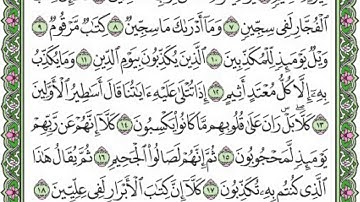 ٱلْفُجَّارِ لَفِى سِجِّينٍ ٧ وَمَآ أَدْرَىٰكَ مَا سِجِّينٌ ٨ كِتَٰبٌ مَّرْقُومٌ ٩
وَيْلٌ يَوْمَئِذٍ لِّلْمُكَذِّبِينَ ١٠ ٱلَّذِينَ يُكَذِّبُونَ بِيَوْمِ ٱلدِّينِ ١١ وَمَا يُكَذِّبُ
بِهِۦٓ إِلَّا كُلُّ مُعْتَدٍ أَثِيمٍ ١٢ إِذَا تُتْلَىٰ عَلَيْهِ ءَايَٰتُنَا قَالَ أَسَٰطِيرُ ٱلْأَوَّلِينَ
١٣ كَلَّا ۖ بَلْ ۜ رَانَ عَلَىٰ قُلُوبِهِم مَّا كَانُوا۟ يَكْسِبُونَ ١٤ كَلَّآ إِنَّهُمْ عَن رَّبِّهِمْ
يَوْمَئِذٍ لَّمَحْجُوبُونَ ١٥ ثُمَّ إِنَّهُمْ لَصَالُوا۟ ٱلْجَحِيمِ ١٦ ثُمَّ يُقَالُ هَٰذَا
ٱلَّذِى كُنتُم بِهِۦ تُكَذِّبُونَ ١٧ كَلَّآ إِنَّ كِتَٰبَ ٱلْأَبْرَارِ لَفِى عِلِّيِّينَ ١٨